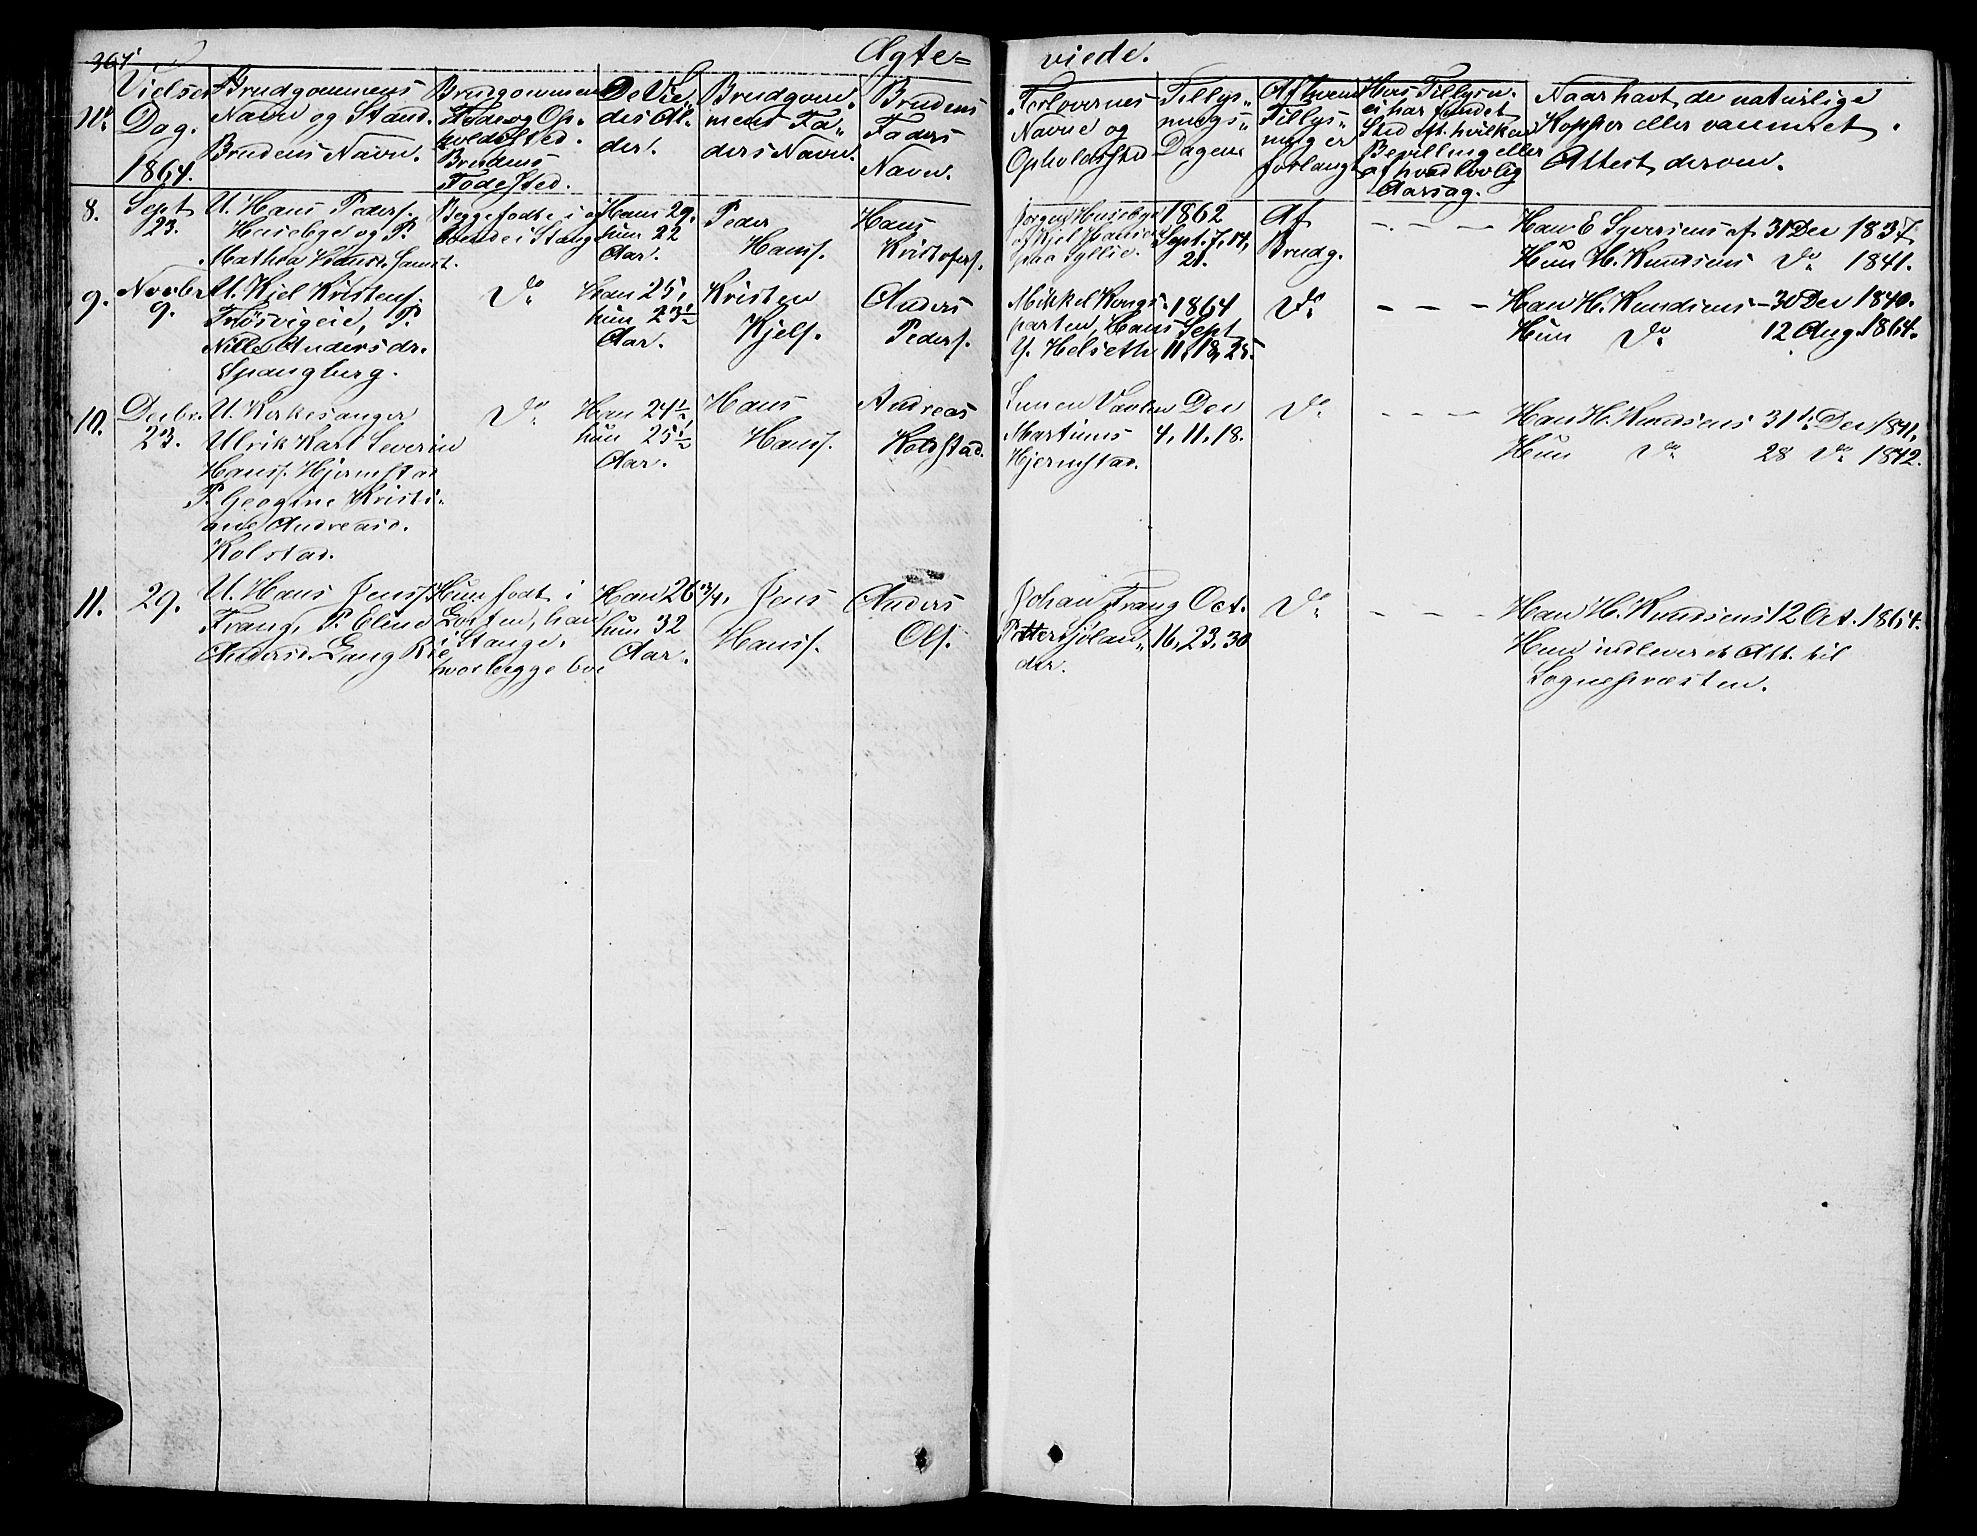 364
Ægte=
viede.
No.
Vielses
Dag.
1864.
Brudgommens
Navn og Stand.
Brudens Navn.
Brudgommens
Føde og Op-
holdsSted.
Brudens
Fødested.
De Vie-
des Al-
der.
Brudgom-
mens Fa-
ders Navn.
Brudens
Faders
Navn.
Forlovernes
Navne og
Opholdssted
Tillys-
nings-
Dagene
Af hvem
Tillys-
ning er
forlangt
Hvis Tillysn.
ei har fundet
Sted eft. hvilken
Bevilling eller
af hvad lovlig
Aarsag.
Naar havt de naturlige
Kopper eller vaccineret.
Attest derom.
8.
Sept
23.
U. Hans Peders.
Husebye og P.
Mathea Hansd. samst.
Begge fødte i og
boende i Stange
Han 29.
hun 22
Aar.
Peder
Hans.
Hans
Kristofers.
Jørgen Husebye
og Kjel Hansen
paa Gyllie.
1862
Sept. 7, 14,
21.
Af
Brudg.
- - -
Han E Syversens af 31 Dec 1837
Hun H. Knudsens Do 1841.
9.
Novbr
9.
U. Kjel Kristens.
Frøsvigeie, P.
Nille Andersdr.
Spangberg.
Do
Han 25,
hun 23½
Aar.
Kristen
Kjels.
Anders
Peders.
Mikkel Kongs-
parten, Hans
Y. Helseth
1864
Sept
11, 18, 25.
Do
- - -
Han H. Knudsens - 30 Dec 1840.
Hun Do 12 Aug. 1864.
10.
Decbr.
23.
U. Kirkesanger
Ulrik Karl Severin
Hanss. Hjermstad
P. Geogine Kristi-
ane Andreasd.
Kolstad.
Do
Han 24½
hun 25½
Aar.
Hans
Hans.
Andreas
Koldstad.
Martinus
Hjermstad.
Dec
4, 11, 18.
Do
- - -
Han H. Knudsens 31t. Dec 1841,
Hun Do 28 Do 1842.
11.
29.
U. Hans Jenss.
Frang, P. Eline
Andersd. Lung
Hun født i
Løiten, han
i Stange,
hvor begge boe
Han 26 3/4,
hun 32
Aar.
Jens
Hanss.
Anders
Ols.
Johan Frang
Petter Sjølan-
der.
Oct.
16, 23, 30
Do
- - -
Han H. Knudsens 12 Oct. 1864.
Hun indleveret Att. til
Sognepræsten.